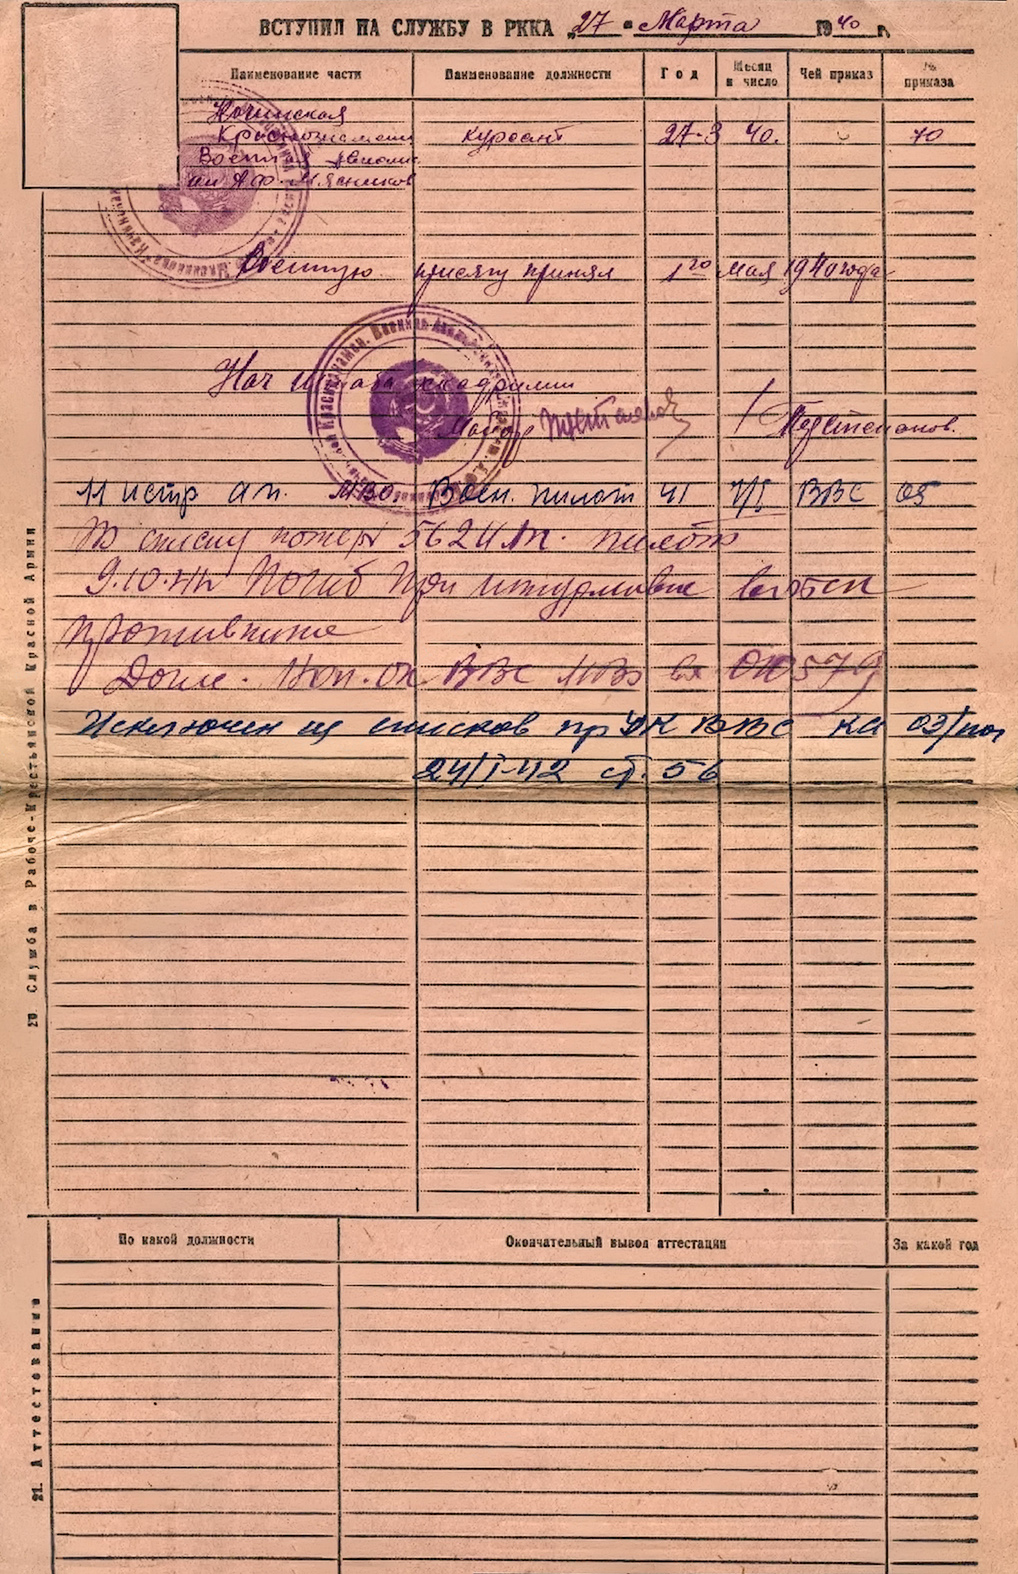 ВСТУПИЛ НА СЛУЖБУ В РККА „27" Марта 1940 г.
Наименование части Наименование должности Год Месяц и число Чей приказ № приказа
Качинская
Краснознаменн курсант 27-3 40. 70
Военн
им А.Ф. Мясников
Военную присягу принял 1го Мая 1940 года
Нач штаба эскадрилии
Майор
11 истр ап. МВО. Воен. пилот 41 7/I ВВС 05
По списку потерь 562 пилот
9.10.41 Погиб при штурмовке войск
противника
ВВС 0579
Исключен из списков пр ВВС КА 03/
24/I-42 ст. 56
20 Служба в Рабоче-Крестьянской Красной Армии
По какой должности Окончательный вывод аттестации За какой год
21. Аттестования